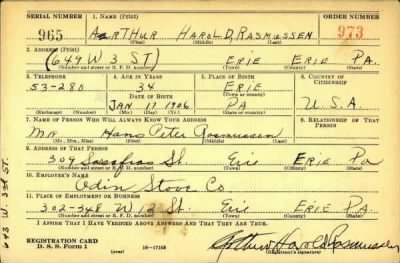 SERIAL NUMBER 1. NAME (Print) ORDER NUMBER
965 ARTHUR HAROLD RASMUSSEN 973
(First) (Middle) (Last)
2. ADDRESS (Print)
(649 W 3 ST) ERIE ERIE PA.
(Number and street or R. F. D. number) (Town) (County) (State)
3. TELEPHONE 4. AGE IN YEARS 5. PLACE OF BIRTH 6. COUNTRY OF CITIZENSHIP
53-280 34 ERIE
DATE OF BIRTH (Town or county)
JAN 17 1906 PA U.S.A.
(Exchange) (Number) (Mo.) (Day) (Yr.) (State or country)
7. NAME OF PERSON WHO WILL ALWAYS KNOW YOUR ADDRESS 8. RELATIONSHIP OF THAT PERSON
Mr Hans Peter Rasmussen
(Mr., Mrs., Miss) (First) (Middle) (Last)
9. ADDRESS OF THAT PERSON
309 Sassafras St. Erie ERIE Pa
(Number and street or R. F. D. number) (Town) (County) (State)
10. EMPLOYER'S NAME
Odin Stove Co.
11. PLACE OF EMPLOYMENT OR BUSINESS
302-348 W 12 St. ERIE ERIE PA
(Number and street or R. F. D. number) (Town) (County) (State)
I AFFIRM THAT I HAVE VERIFIED ABOVE ANSWERS AND THAT THEY ARE TRUE.
REGISTRATION CARD
D. S. S. Form 1 (over) Arthur Harold Rasmussen
(Registrant's signature)
W. 3rd ST.